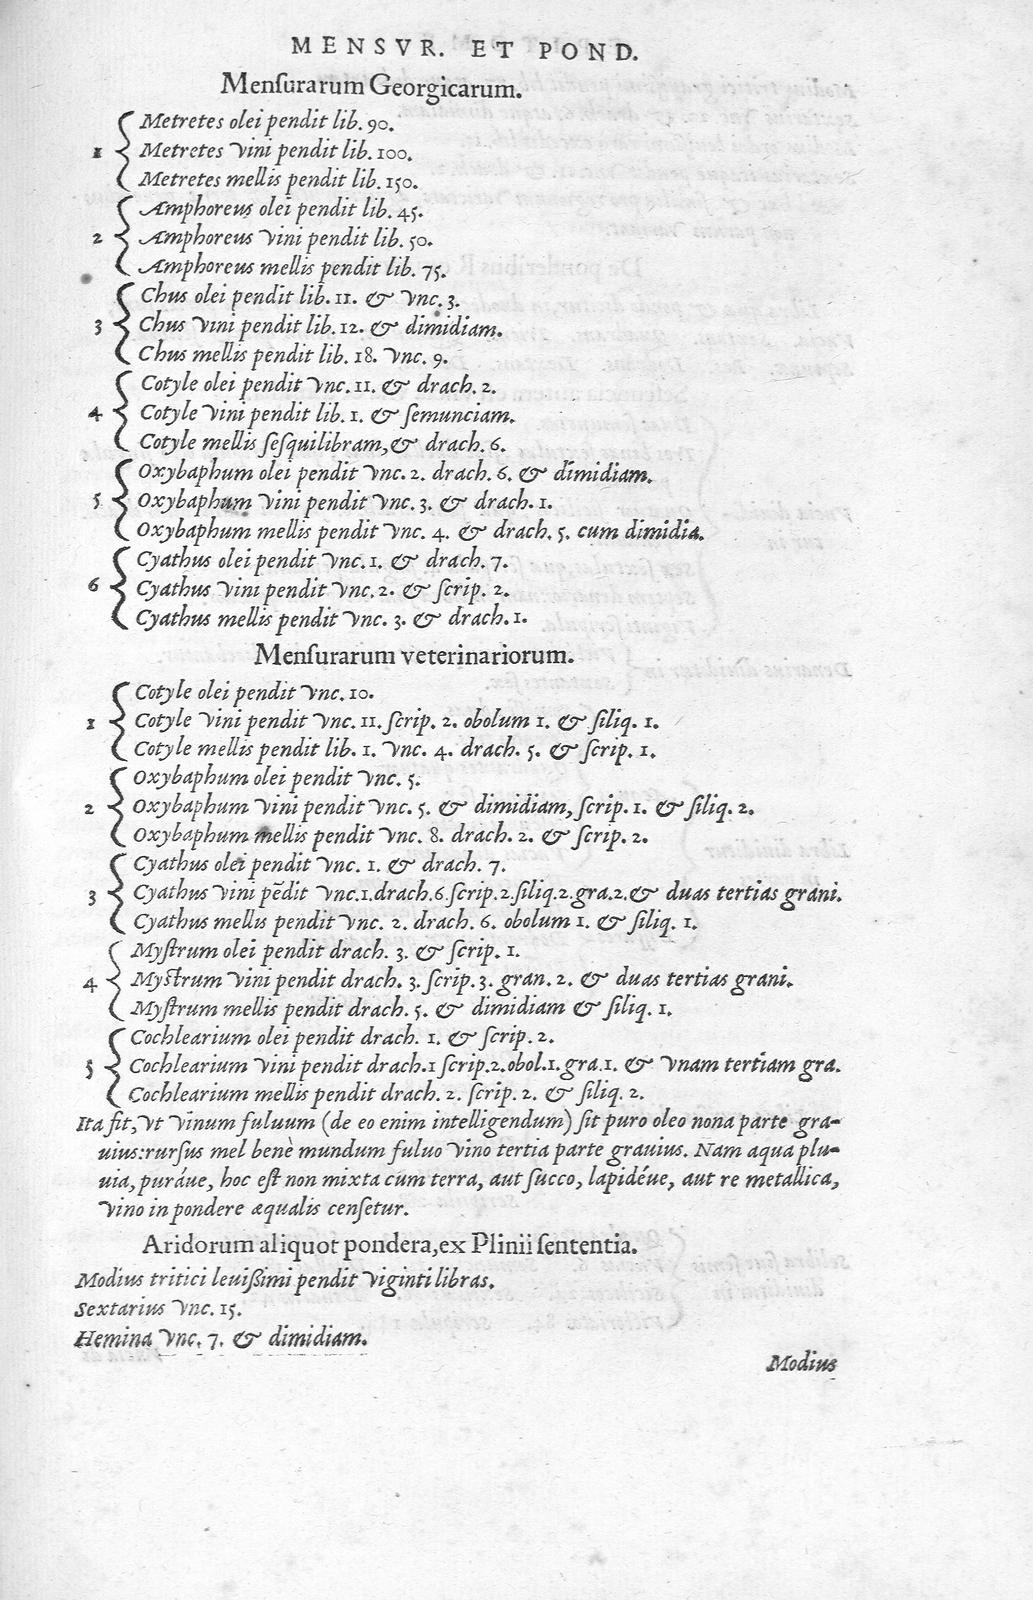 MENSVR. ET POND.
Menſurarum Georgicarum.
Metretes olei pendit lib. 90.
1 Metretes vini pendit lib. 100.
Metretes mellis pendit lib. 150.
Amphoreus olei pendit lib. 45.
2 Amphoreus vini pendit lib. 50.
Amphoreus mellis pendit lib. 75.
Chus olei pendit lib. 11. & vnc. 3.
3 Chus vini pendit lib. 12. & dimidiam.
Chus mellis pendit lib. 18. vnc. 9.
Cotyle olei pendit vnc. 11. & drach. 2.
4 Cotyle vini pendit lib. 1. & ſemunciam.
Cotyle mellis ſeſquilibram, & drach. 6.
Oxybaphum olei pendit vnc. 2. drach. 6. & dimidiam.
5 Oxybaphum vini pendit vnc. 3. & drach. 1.
Oxybaphum mellis pendit vnc. 4. & drach. 5. cum dimidia.
Cyathus olei pendit vnc. 1. & drach. 7.
6 Cyathus vini pendit vnc. 2. & ſcrip. 2.
Cyathus mellis pendit vnc. 3. & drach. 1.
Menſurarum veterinariorum.
Cotyle olei pendit vnc. 10.
1 Cotyle vini pendit vnc. 11. ſcrip. 2. obolum 1. & ſiliq. 1.
Cotyle mellis pendit lib. 1. vnc. 4. drach. 5. & ſcrip. 1.
Oxybaphum olei pendit vnc. 5.
2 Oxybaphum vini pendit vnc. 5. & dimidiam, ſcrip. 1. & ſiliq. 2.
Oxybaphum mellis pendit vnc. 8. drach. 2. & ſcrip. 2.
Cyathus olei pendit vnc. 1. & drach. 7.
3 Cyathus vini pẽdit vnc.1.drach.6.ſcrip.2.ſiliq.2.gra.2.& duas tertias grani.
Cyathus mellis pendit vnc. 2. drach. 6. obolum 1. & ſiliq. 1.
Myſtrum olei pendit drach. 3. & ſcrip. 1.
4 Myſtrum vini pendit drach. 3. ſcrip. 3. gran. 2. & duas tertias grani.
Myſtrum mellis pendit drach. 5. & dimidiam & ſiliq. 1.
Cochlearium olei pendit drach. 1. & ſcrip. 2.
5 Cochlearium vini pendit drach.1 ſcrip.2.obol.1.gra.1. & vnam tertiam gra.
Cochlearium mellis pendit drach. 2. ſcrip. 2. & ſiliq. 2.
Ita fit, vt vinum fuluum (de eo enim intelligendum) ſit puro oleo nona parte gra-
uius: rurſus mel benè mundum fuluo vino tertia parte grauius. Nam aqua plu-
uia, puráue, hoc eſt non mixta cum terra, aut ſucco, lapidéue, aut re metallica,
vino in pondere æqualis cenſetur.
Aridorum aliquot pondera, ex Plinii ſententia.
Modius tritici leuiſſimi pendit viginti libras.
Sextarius vnc. 15.
Hemina vnc. 7. & dimidiam.
Modius